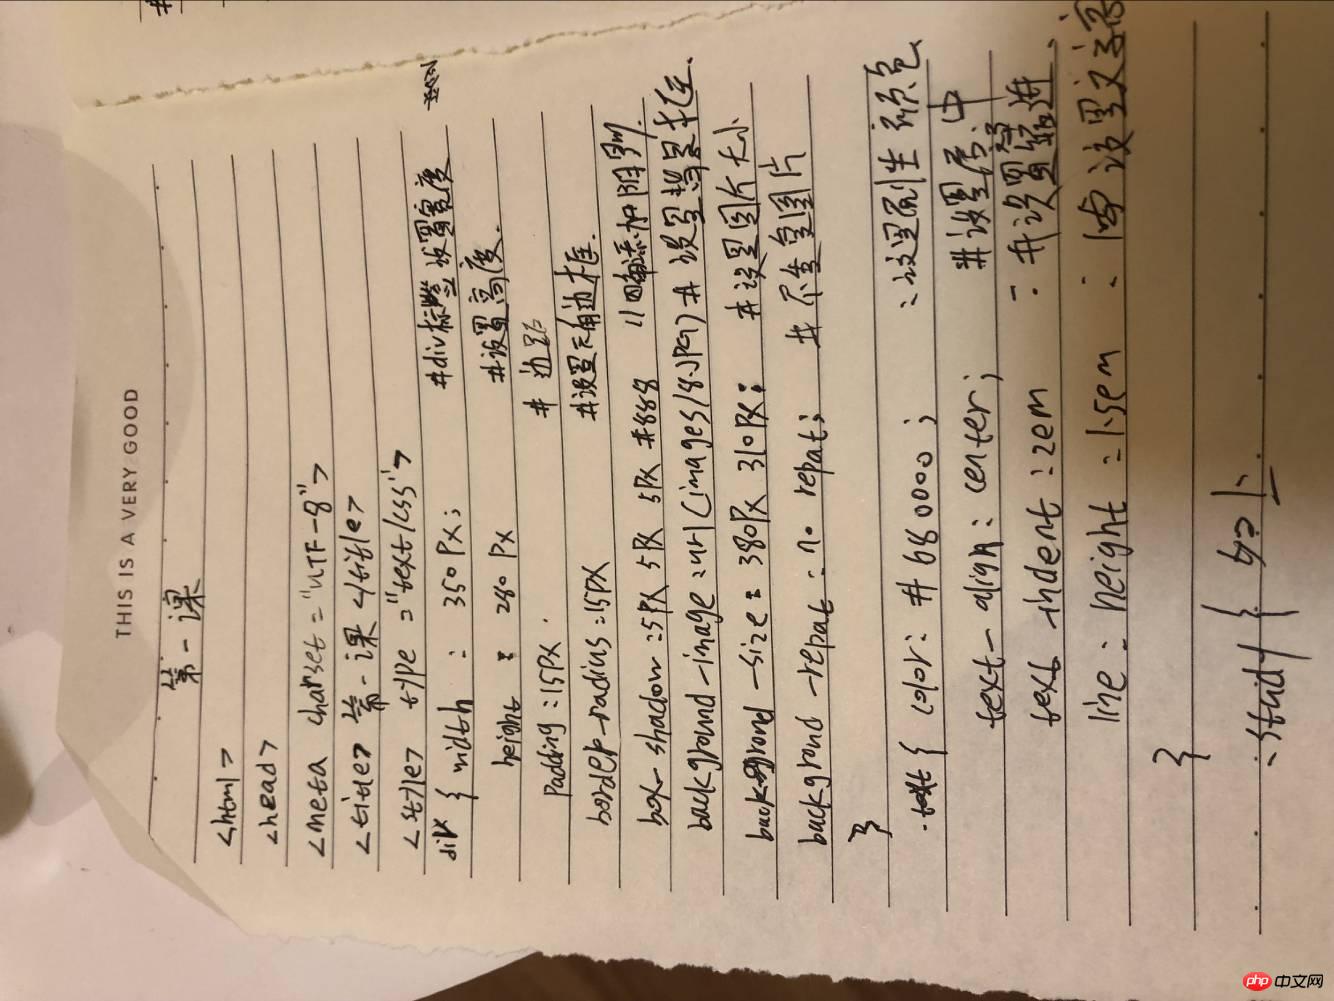 THIS IS A VERY GOOD
第一课
<html>
<head>
<meta charset="UTF-8">
<title>第一课</title>
<style> type="text/css">
div { width : 350px; #div标签 设置宽度
height : 280px #设置高度.
padding:15px. #边距
border-radius:15px #设置角边框.
box-shadow:5px 5px 5px #888 //四角添加阴影.
background-image:url(images/8.JPG) # 设置背景
background-size:380px 310px; #设置图片大小
background-repat:no repat; # 不重复图片
}
.text { color: #680000; :设置 颜色
text-align: center; #设置居中
text-indent:2em :#设置缩进
line:height:1.5em : 设置文字高
}
.study {
php 中文网